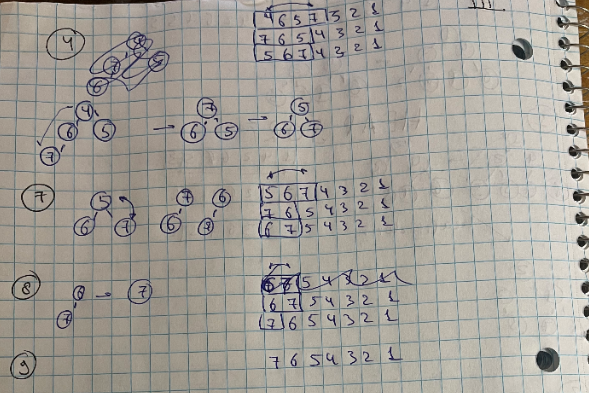 4
4 6 5 7 3 2 1
7 6 5 4 3 2 1
5 6 7 4 3 2 1
7
6
4
6 5
7
7
6 5
5
6 7
7
5
6 7
7
6
6
5 6 7 4 3 2 1
7 6 5 4 3 2 1
6 7 5 4 3 2 1
8
6
7
7
6 7 5 4 3 2 1
6 7 5 4 3 2 1
7 6 5 4 3 2 1
9
7 6 5 4 3 2 1